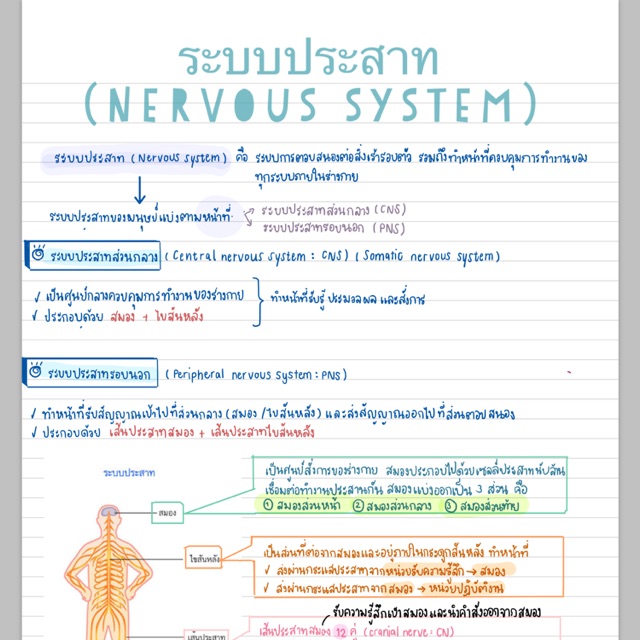 ระบบประสาท
(NERVOUS SYSTEM)
ระบบประสาท (Nervous system) คือ ระบบการตอบสนองต่อสิ่งเร้ารอบตัว รวมถึงทำหน้าที่ควบคุมการทำงานของ
ทุกระบบภายในร่างกาย
ระบบประสาทของมนุษย์แบ่งตามหน้าที่
ระบบประสาทส่วนกลาง (CNS)
ระบบประสาทรอบนอก (PNS)
ระบบประสาทส่วนกลาง (Central nervous system : CNS) (Somatic nervous system)
✓ เป็นศูนย์กลางควบคุมการทำงานของร่างกาย
✓ ประกอบด้วย สมอง + ไขสันหลัง
ทำหน้าที่รับรู้ ประมวลผล และสั่งการ
ระบบประสาทรอบนอก (Peripheral nervous system : PNS)
✓ ทำหน้าที่รับสัญญาณเข้าไปที่ส่วนกลาง (สมอง/ไขสันหลัง) และส่งสัญญาณออกไปที่ส่วนตอบสนอง
✓ ประกอบด้วย เส้นประสาทสมอง + เส้นประสาทไขสันหลัง
ระบบประสาท
สมอง
เป็นศูนย์สั่งการของร่างกาย สมองประกอบไปด้วยเซลล์ประสาทนับล้าน
เชื่อมต่อทำงานประสานกัน สมองแบ่งออกเป็น 3 ส่วน คือ
① สมองส่วนหน้า ② สมองส่วนกลาง ③ สมองส่วนท้าย
ไขสันหลัง
เป็นส่วนที่ต่อจากสมองและอยู่ภายในกระดูกสันหลัง ทำหน้าที่
✓ ส่งผ่านกระแสประสาทจากหน่วยรับความรู้สึก → สมอง
✓ ส่งผ่านกระแสประสาทจาก สมอง → หน่วยปฏิบัติงาน
รับความรู้สึกเข้าสมองและนำคำสั่งออกจากสมอง
เส้นประสาทสมอง
เส้นประสาทสมอง 12 คู่ (cranial nerve : CN)